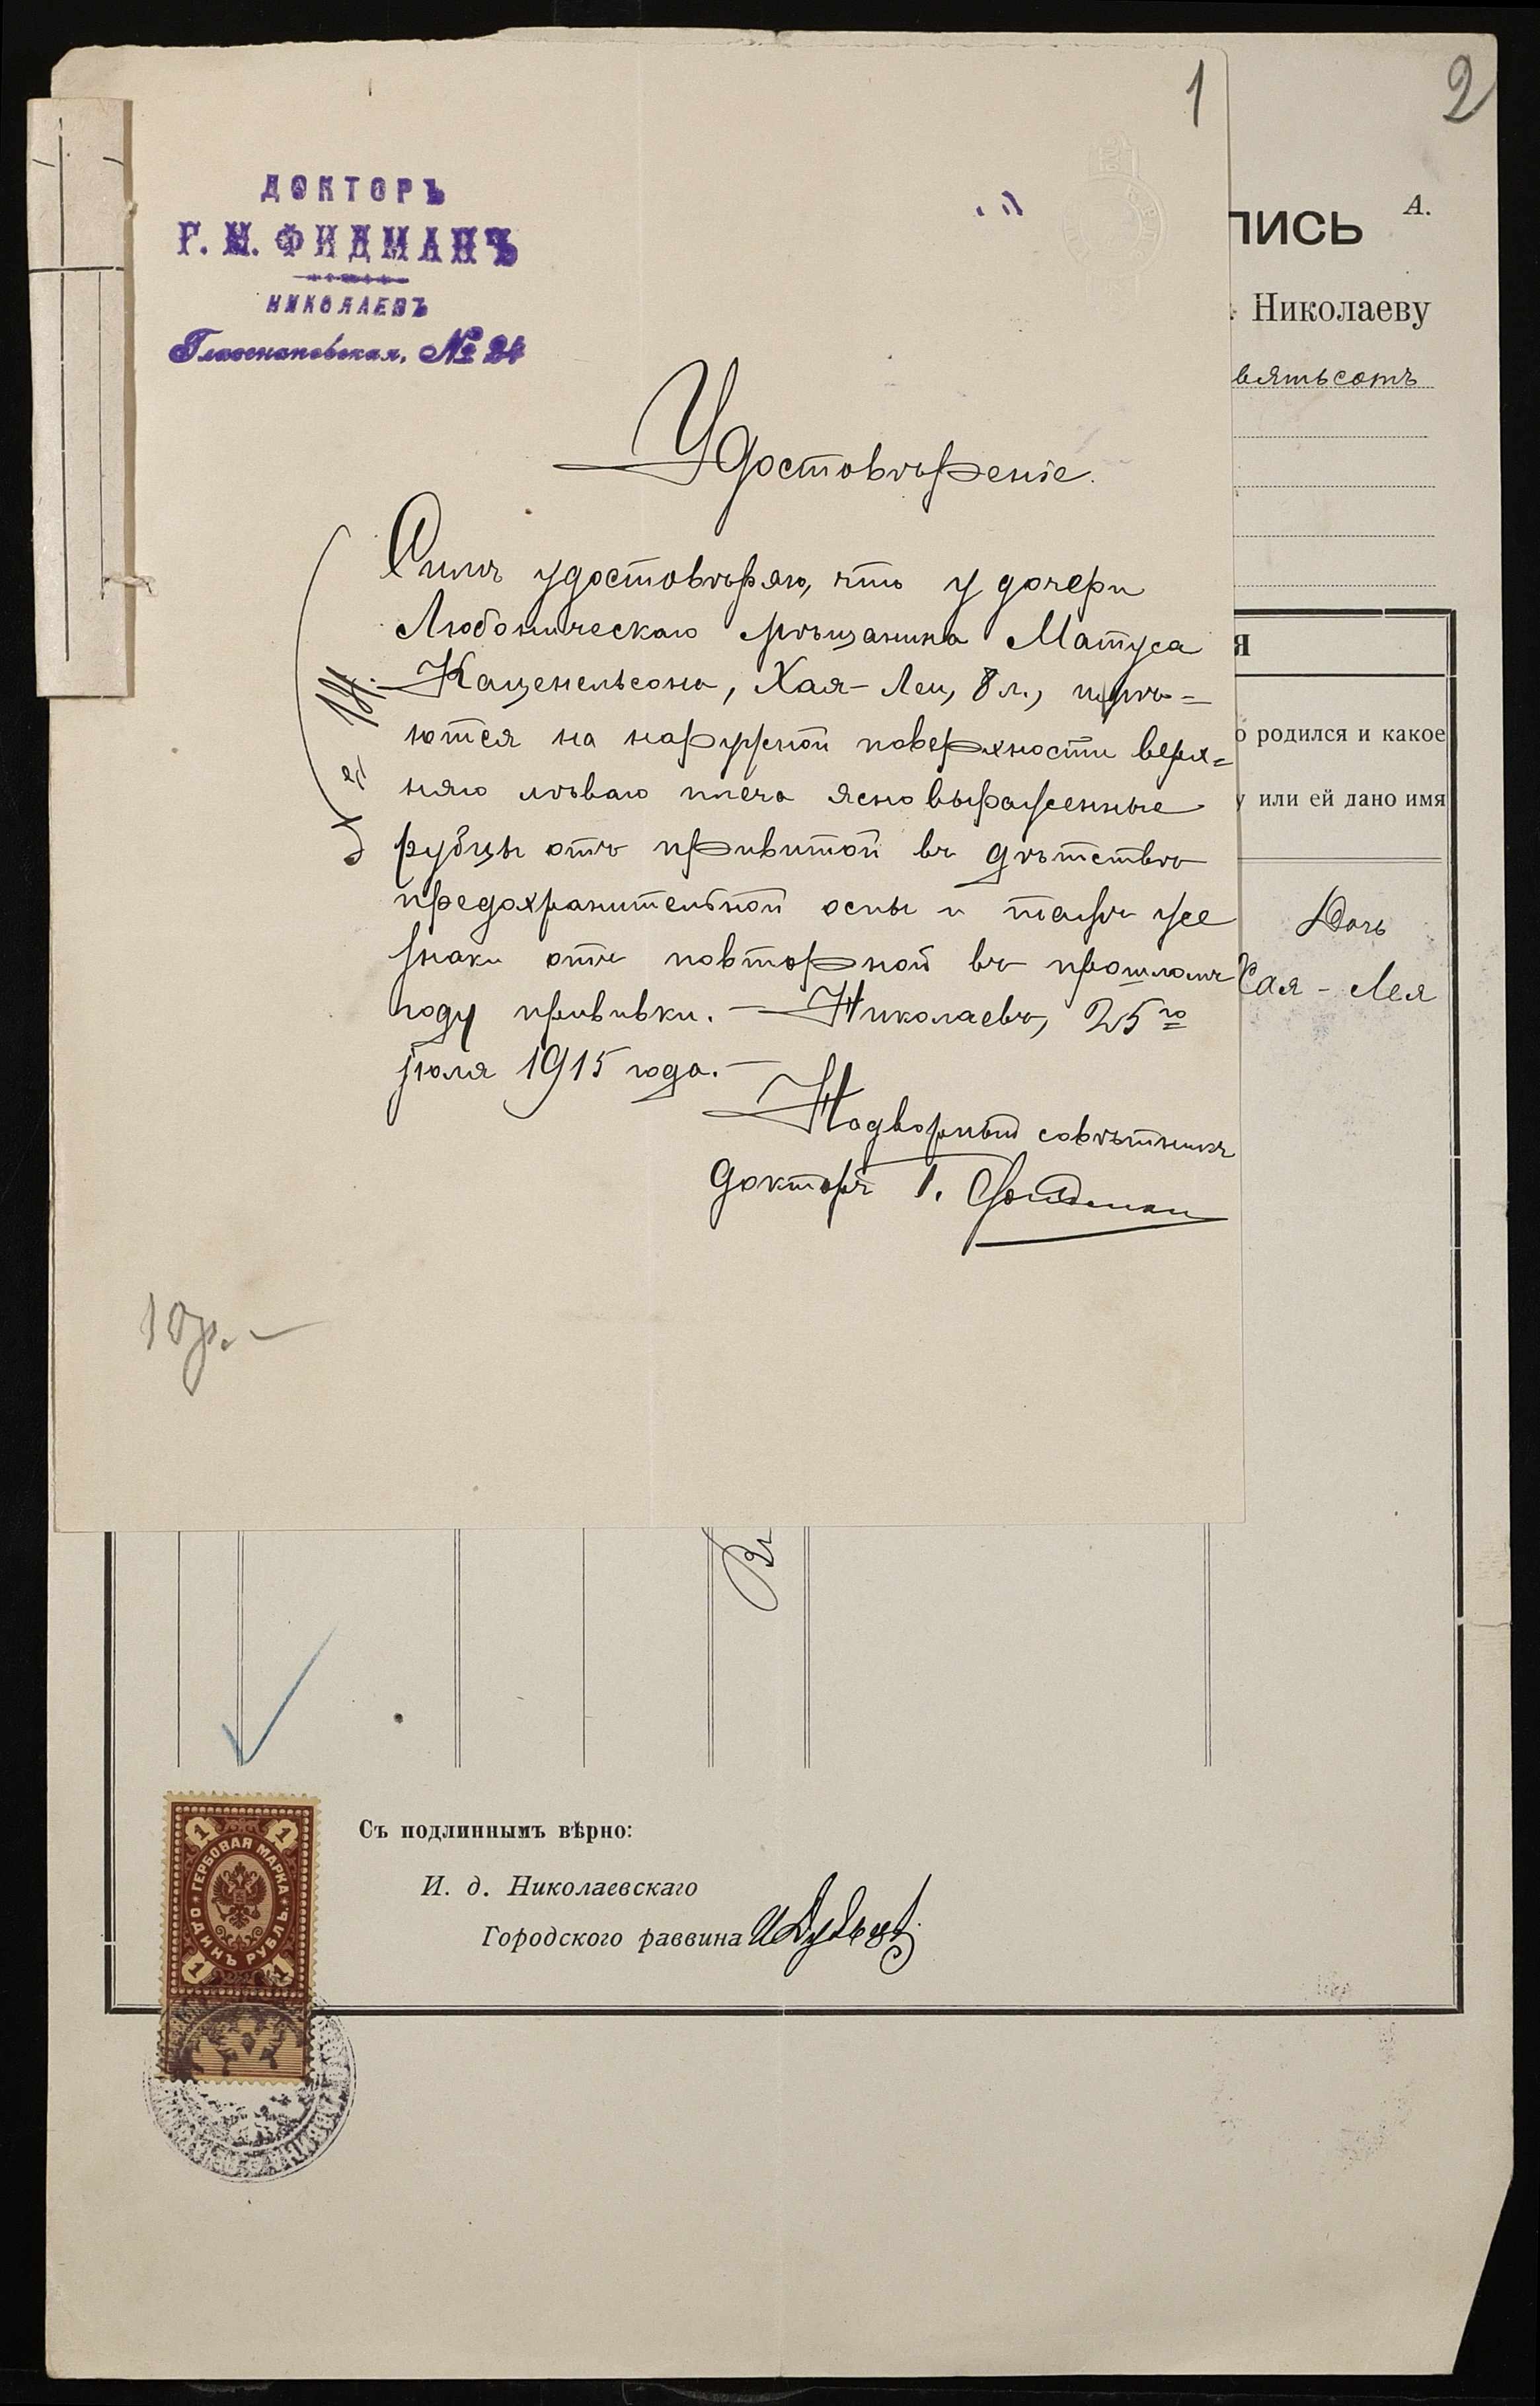 1
2
ДОКТОРЪ
Г. М. ФИДМАНЪ
НИКОЛАЕВЪ
№ 24
Удостовѣреніе.
Симъ удостовѣряю, что у дочери
Любоничскаго мѣщанина Матуса
Каценельсона, Хая-Леи, 8 л., имѣ=
ются на наружной поверхности верх=
няго лѣваго плеча ясно выраженные
рубцы отъ привитой въ дѣтствѣ
предохранительной оспы и такіе же
знаки отъ повторной въ прошломъ
году прививки. — Николаевъ, 25го
іюля 1915 года. —
Надворный совѣтникъ
докторъ Г. Фидман
10р. —
ПИСЬ
А.
Николаеву
вятьсотъ
я
о родился и какое
у или ей дано имя
Дочь
Хая - Лея
Въ
ГЕРБОВАЯ МАРКА
ОДИНЪ РУБЛЬ
1 1 1 1
Съ подлиннымъ вѣрно:
И. д. Николаевскаго
Городского раввина